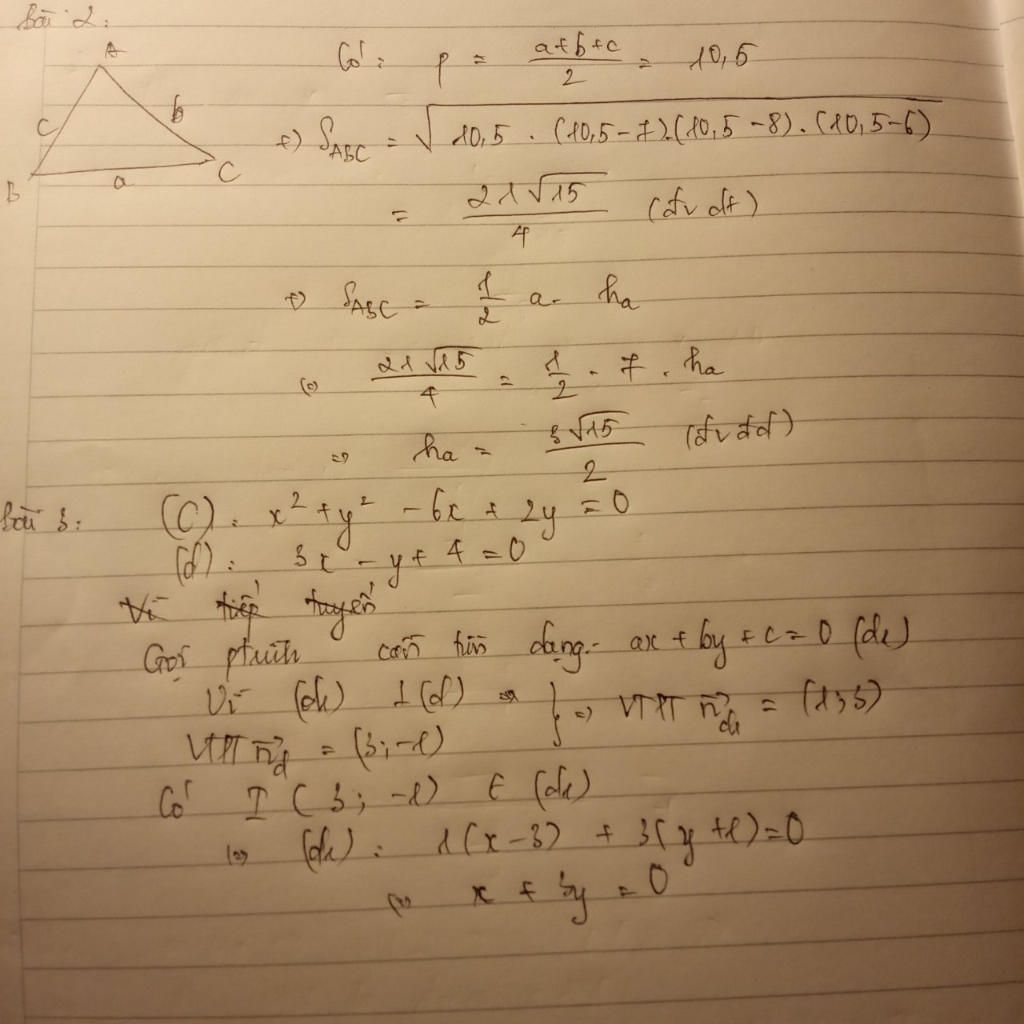 Bài 2:
A
c
b
B
a
C
Có: p = (a+b+c)/2 = 10,5
+) S_ABC = √(10,5 . (10,5-7).(10,5-8).(10,5-6))
= 21√15/4 (đvdt)
+) S_ABC = 1/2 a. ha
(=) 21√15/4 = 1/2 . 7 . ha
=> ha = 3√15/2 (đvđd)
Bài 3: (C): x² + y² - 6x + 2y = 0
(d): 3x - y + 4 = 0
Vì tiếp tuyến
Gọi ptrình cần tìm dạng: ax + by + c = 0 (d1)
Vì (d1) ⊥ (d) } => VTPT n⃗d1 = (1;3)
VTPT n⃗d = (3; -1)
Có I (3; -1) ∈ (d1)
(=) (d1): 1(x-3) + 3(y+1) = 0
(=) x + 3y = 0